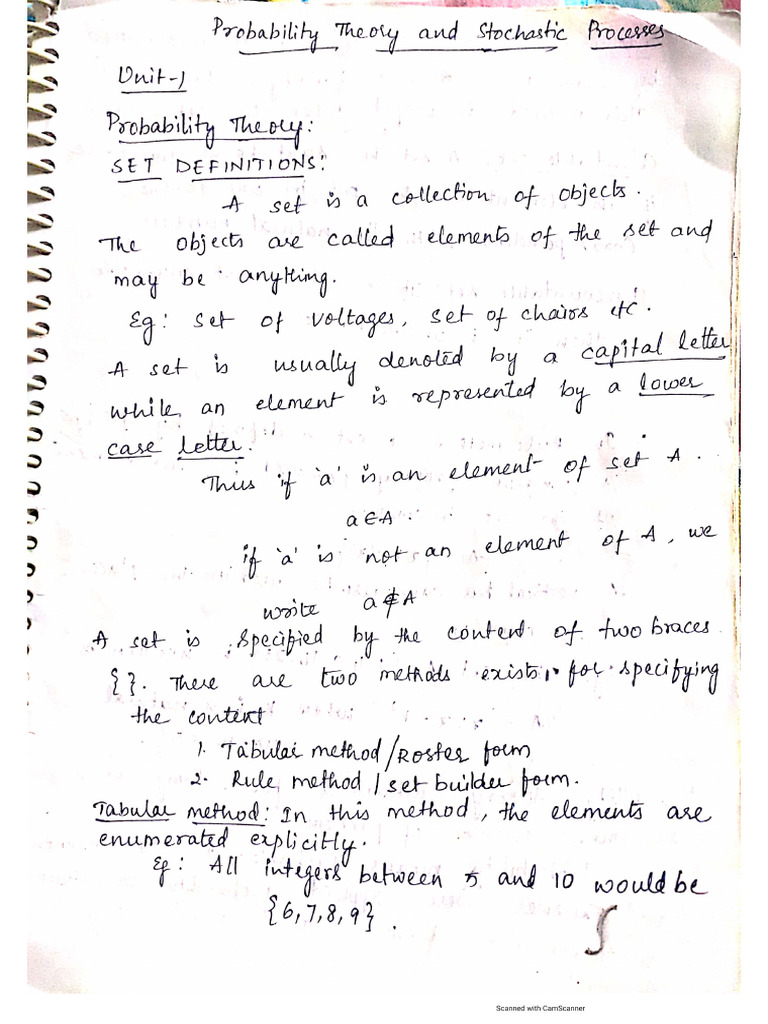 Probability Theory and Stochastic Processes
Unit-1
Probability Theory:
SET DEFINITIONS:
A set is a collection of objects.
The objects are called elements of the set and
may be anything.
Eg: set of voltages, set of chairs etc.
A set is usually denoted by a capital letter
while an element is represented by a lower
case letter.
Thus if 'a' is an element of set A.
a∈A.
if 'a' is not an element of A, we
write a∉A
A set is specified by the content of two braces
{}. There are two methods exists, for specifying
the content
1. Tabular method/Roster form
2. Rule method / set builder form.
Tabular method: In this method, the elements are
enumerated explicitly.
Eg: All integers between 5 and 10 would be
{6,7,8,9}.
Scanned with CamScanner